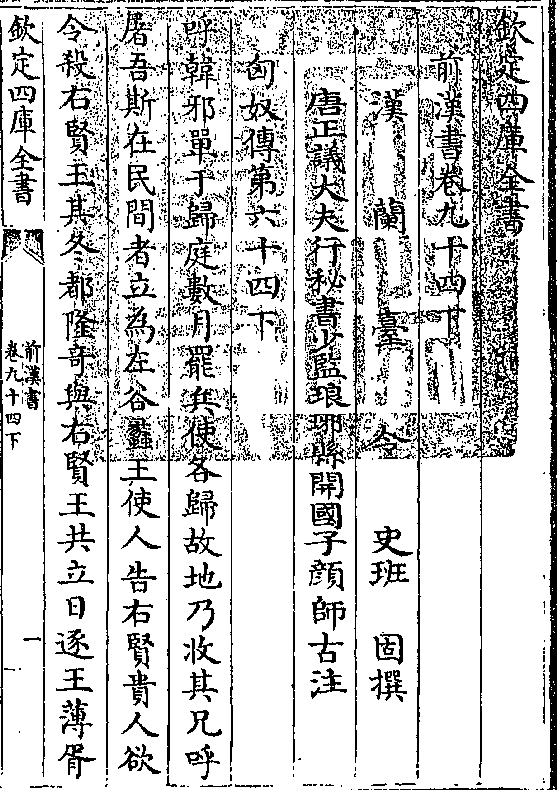 欽定四庫全書
前漢書卷九十四下
漢蘭臺令史班固撰
唐正議大夫行秘書少監琅邪縣開國子顔師古注
匈奴傳第六十四下
呼韓邪單于歸庭數月罷兵使各歸故地乃收其兄呼
屠吾斯在民間者立為左谷蠡王使人告右賢貴人欲
令殺右賢王其冬都隆奇與右賢王共立日逐王薄胥
欽定四庫全書
前漢書
卷九十四下
一